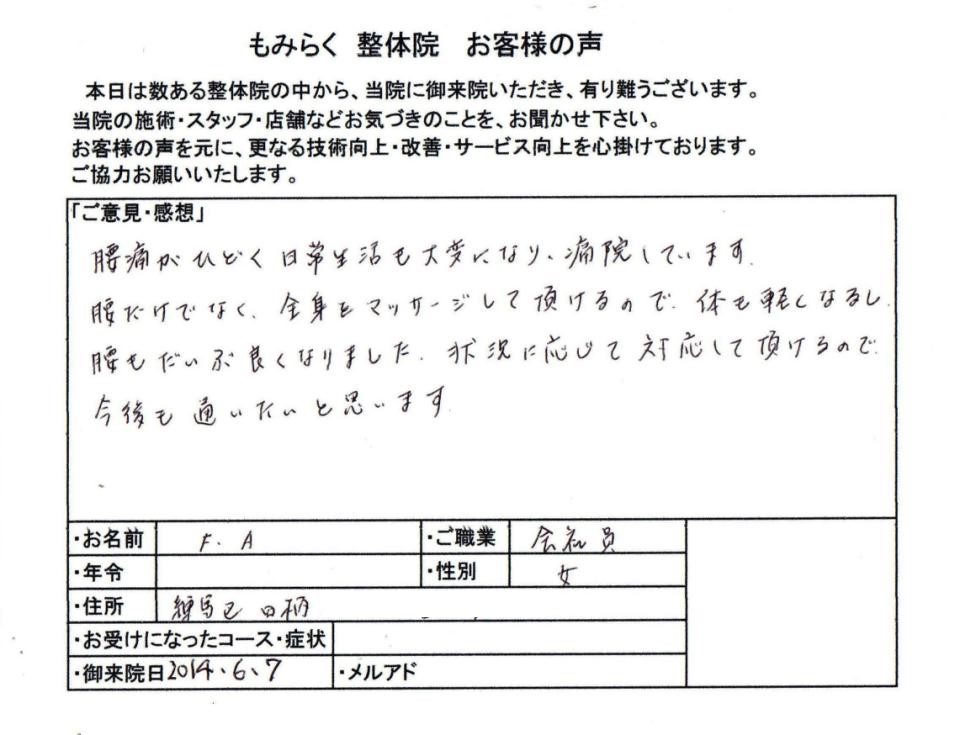 もみらく 整体院 お客様の声
本日は数ある整体院の中から、当院に御来院いただき、有り難うございます。
当院の施術・スタッフ・店舗などお気づきのことを、お聞かせ下さい。
お客様の声を元に、更なる技術向上・改善・サービス向上を心掛けております。
ご協力お願いいたします。
「ご意見・感想」
腰痛がひどく日常生活も大変になり、痛院しています.
腰だけでなく、全身をマッサージして頂けるので、体も軽くなるし、
腰もだいぶ良くなりました. 状況に応じて対応して頂けるので
今後も通いたいと思います
・お名前 F. A ・ご職業 会社員
・年令 ・性別 女
・住所 練馬区 田柄
・お受けになったコース・症状
・御来院日 2014、6、7 ・メルアド